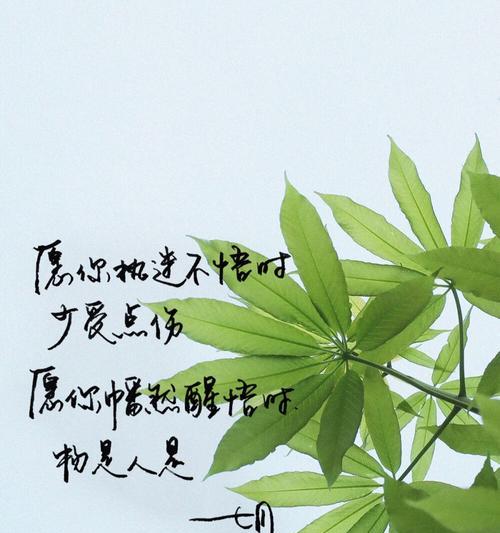 愿你执迷不悟时
少受点伤
愿你幡然醒悟时.
物是人是
—七月